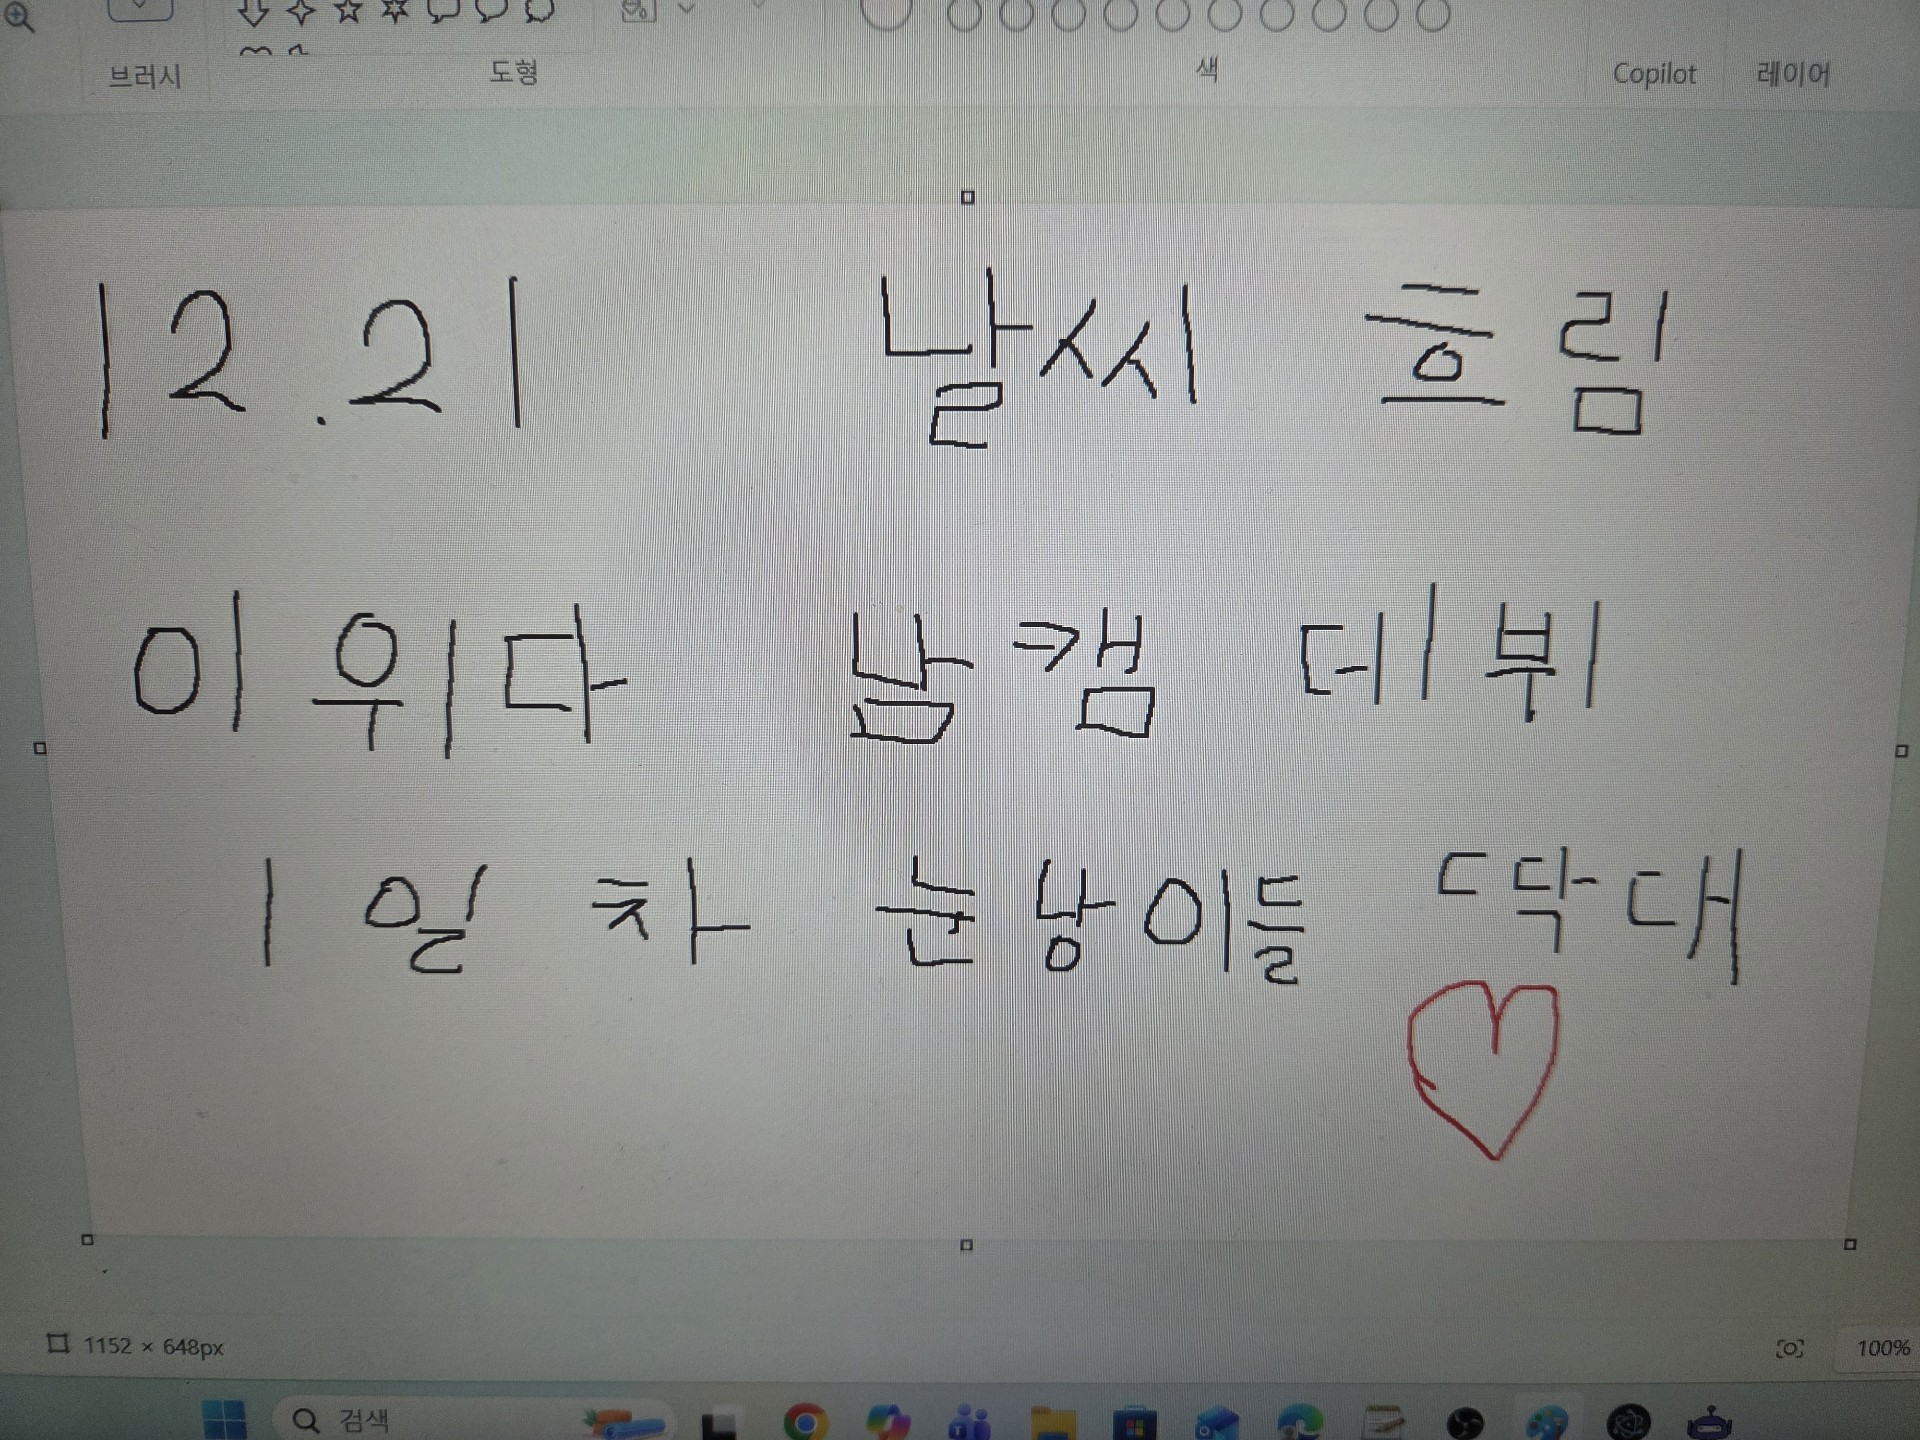 브러시 도형 색 Copilot 레이어
12.21 날씨 흐림
이위다 남캠 데뷔
1일차 눈낭이들 딱대
1152 × 648px 100%
검색